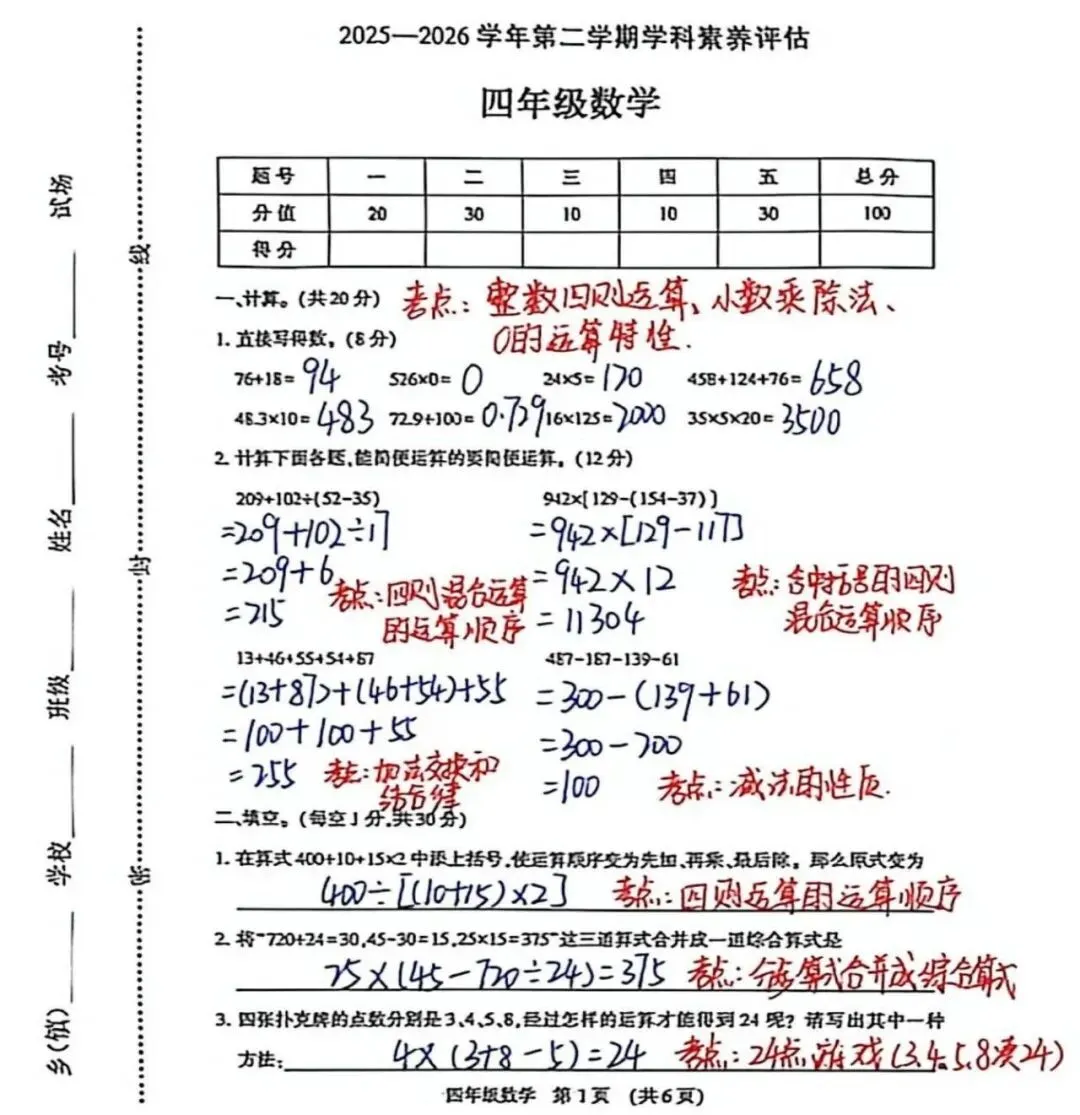 2025—2026学年第二学期学科素养评估
四年级数学
题号 一 二 三 四 五 总分
分值 20 30 10 10 30 100
得分
一、计算。(共20分) 考点:整数四则运算、小数乘除法、
0的运算特性.
1. 直接写得数。(8分)
76+18= 94 526×0= 0 24×5= 120 458+124+76= 658
48.3×10= 483 72.9÷100= 0.729 16×125= 2000 35×5×20= 3500
2. 计算下面各题,能简便运算的要简便运算。(12分)
209+102÷(52-35) 942×[129-(154-37)]
=209+102÷17 =942×[129-117]
=209+6 =942×12
=215 =11304
考点:四则混合运算
的运算顺序
考点:含中括号的四则
混合运算顺序
13+46+55+54+87 487-187-139-61
=(13+87)+(46+54)+55 =300-(139+61)
=100+100+55 =300-200
=255 =100
考点:加法交换和
结合律
考点:减法的性质.
二、填空。(每空1分,共30分)
1. 在算式400÷10+15×2中添上括号,使运算顺序变为先加、再乘、最后除。那么原式变为
400÷[(10+15)×2] 考点:四则运算的运算顺序
2. 将"720÷24=30,45-30=15,25×15=375"这三道算式合并成一道综合算式是
25×(45-720÷24)=375 考点:分步算式合并成综合算式
3. 四张扑克牌的点数分别是3、4、5、8,经过怎样的运算才能得到24呢?请写出其中一种
方法: 4×(3+8-5)=24 考点:24点游戏(3.4.5.8凑24)
四年级数学 第1页 (共6页)
乡(镇) 学校 班级 姓名 考号 试场
密 封 线